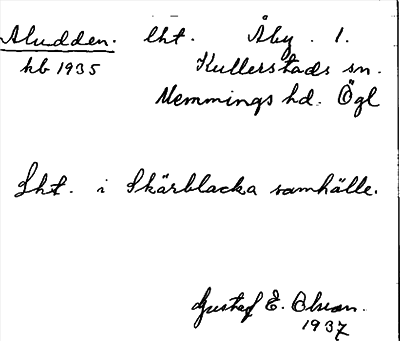 Aludden. lht. Åby. 1.
hb 1935 Kullerstads sn.
Memmings hd. Ögl
Lht. i Skärblacka samhälle.
Gustaf E. Olson.
1937